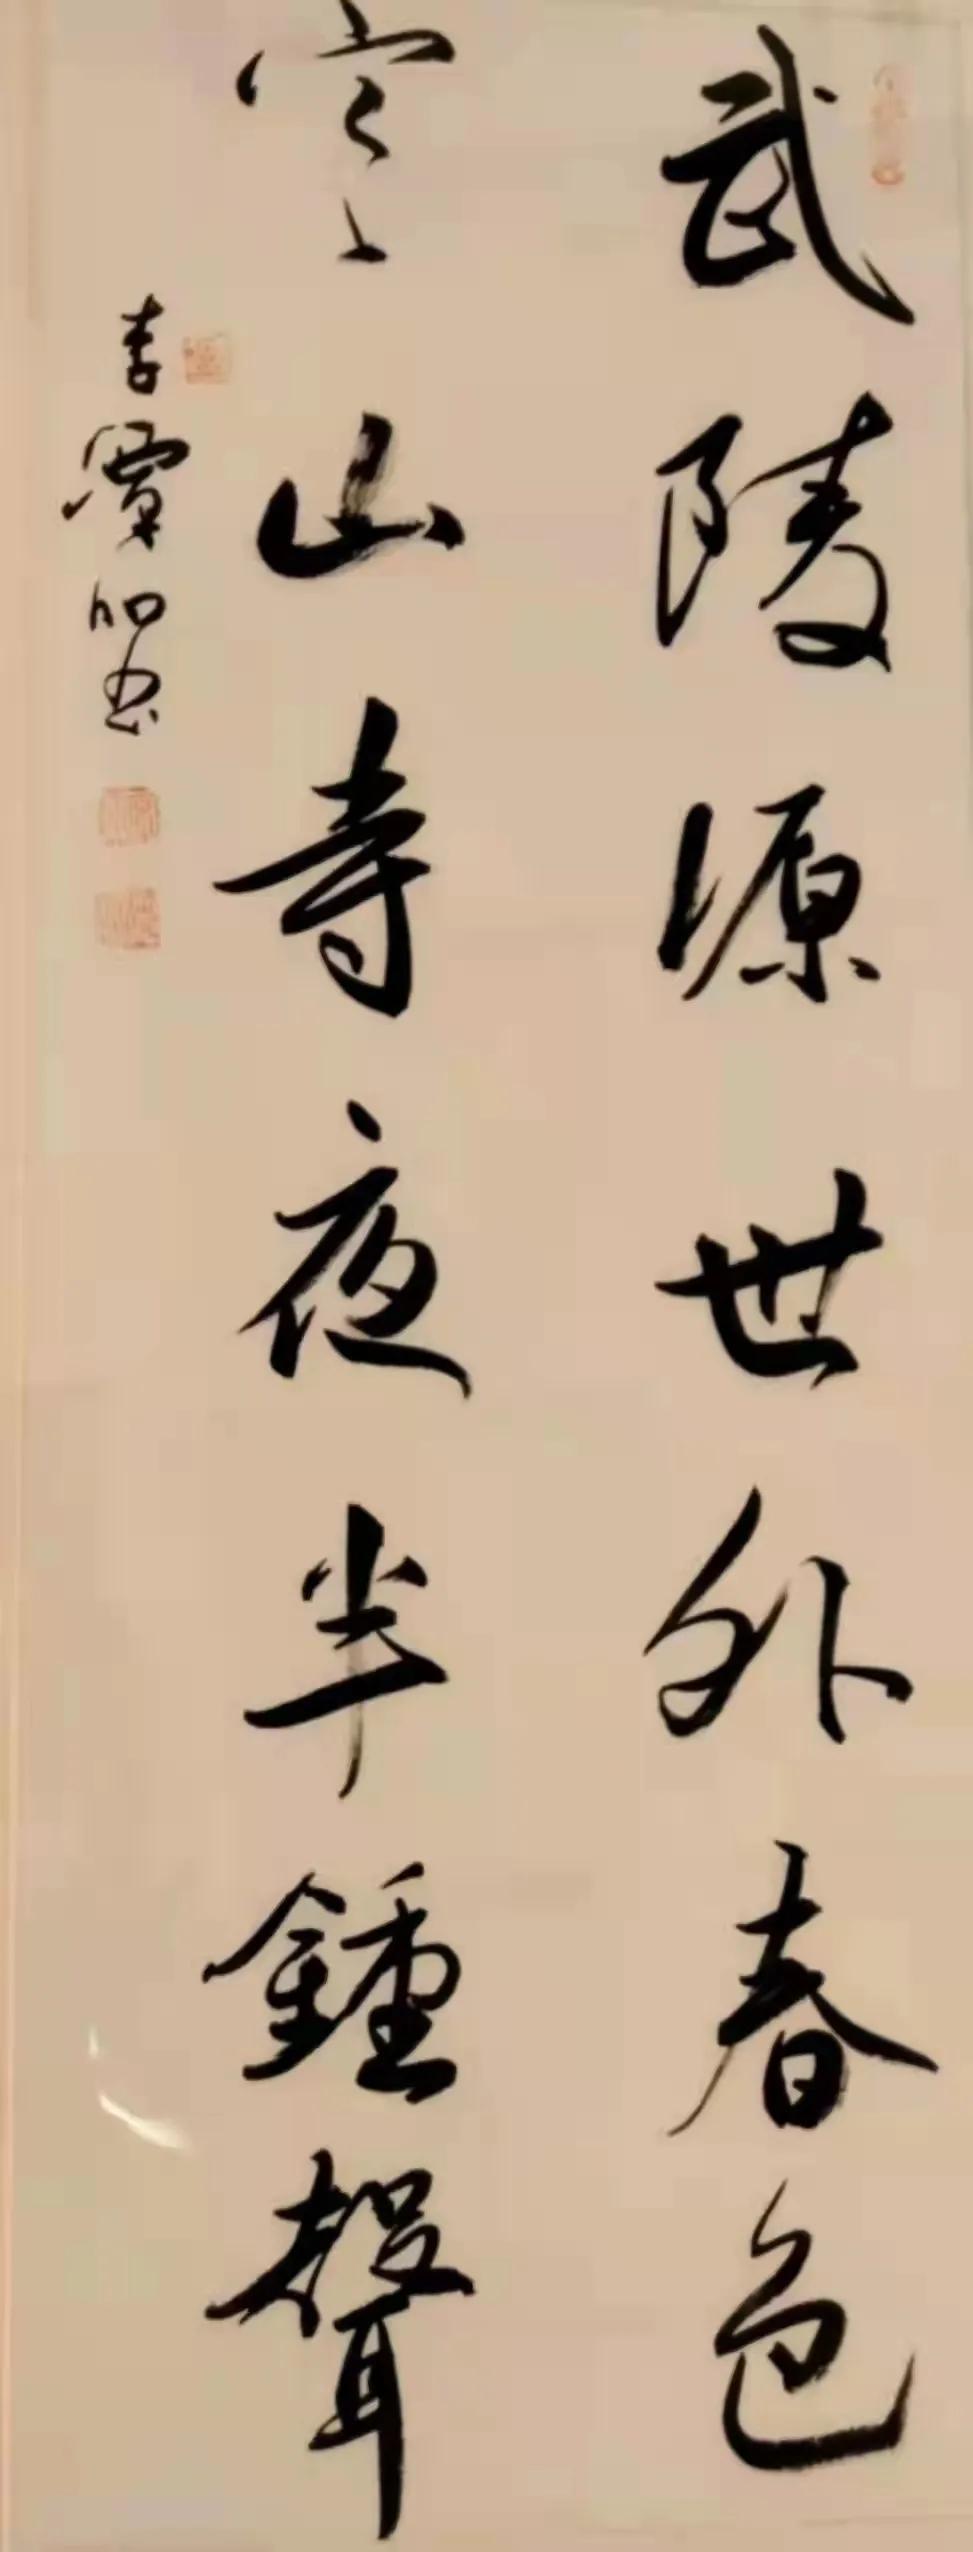 武陵源世外春色
寒山寺夜半鍾聲